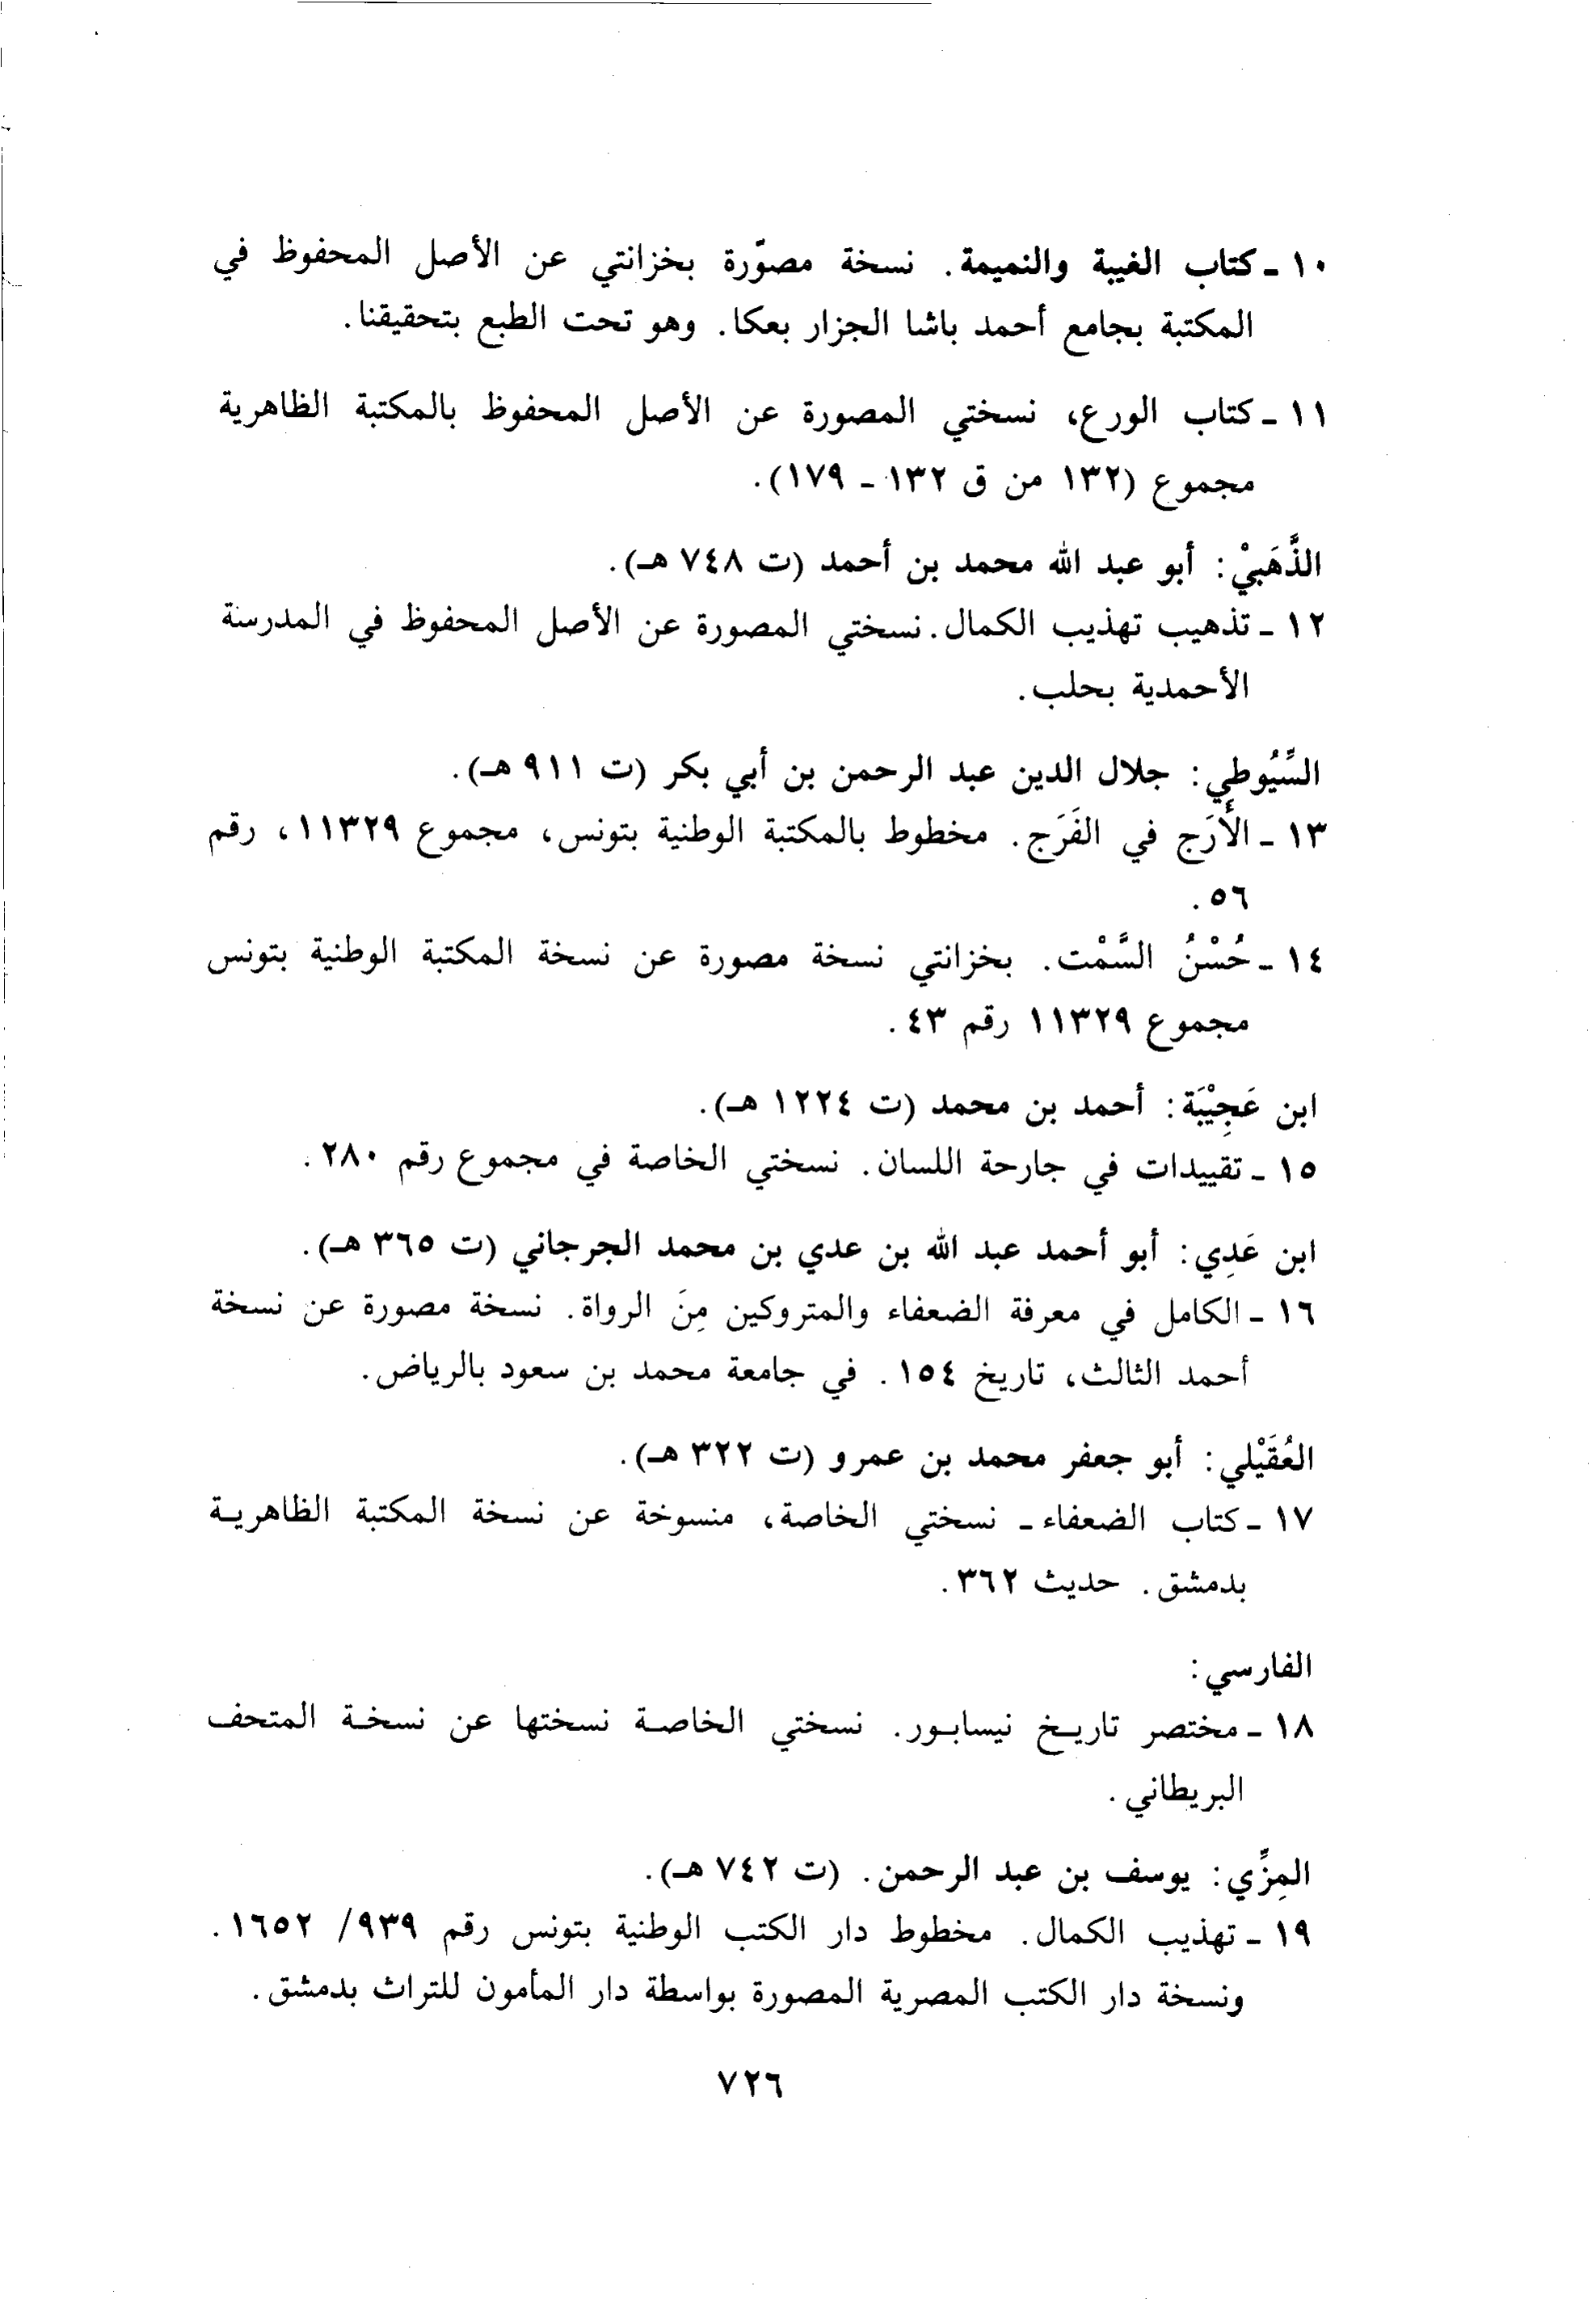 ١٠ - كتاب الغيبة والنميمة. نسخة مصوّرة بخزانتي عن الأصل المحفوظ في
المكتبة بجامع أحمد باشا الجزار بعكا. وهو تحت الطبع بتحقيقنا.
١١ - كتاب الورع، نسختي المصورة عن الأصل المحفوظ بالمكتبة الظاهرية
مجموع (١٣٢ من ق ١٣٢ - ١٧٩).
الذَّهَبيْ: أبو عبد الله محمد بن أحمد (ت ٧٤٨ هـ).
١٢ - تذهيب تهذيب الكمال. نسختي المصورة عن الأصل المحفوظ في المدرسة
الأحمدية بحلب.
السِّيُوطي: جلال الدين عبد الرحمن بن أبي بكر (ت ٩١١ هـ).
١٣ - الأَرَج في الفَرَج. مخطوط بالمكتبة الوطنية بتونس، مجموع ١١٣٢٩، رقم
٥٦.
١٤ - حُسْنُ السَّمْت. بخزانتي نسخة مصورة عن نسخة المكتبة الوطنية بتونس
مجموع ١١٣٢٩ رقم ٤٣.
ابن عَجِيْبَة: أحمد بن محمد (ت ١٢٢٤ هـ).
١٥ - تقييدات في جارحة اللسان. نسختي الخاصة في مجموع رقم ٢٨٠.
ابن عَدِي: أبو أحمد عبد الله بن عدي بن محمد الجرجاني (ت ٣٦٥ هـ).
١٦ - الكامل في معرفة الضعفاء والمتروكين مِنَ الرواة. نسخة مصورة عن نسخة
أحمد الثالث، تاريخ ١٥٤. في جامعة محمد بن سعود بالرياض.
العُقَيْلي: أبو جعفر محمد بن عمرو (ت ٣٢٢ هـ).
١٧ - كتاب الضعفاء - نسختي الخاصة، منسوخة عن نسخة المكتبة الظاهريـة
بدمشق. حديث ٣٦٢.
الفارسي:
١٨ - مختصر تاريـخ نيسابـور. نسختي الخاصـة نسختها عن نسخـة المتحف
البريطاني.
المِزِّي: يوسف بن عبد الرحمن. (ت ٧٤٢ هـ).
١٩ - تهذيب الكمال. مخطوط دار الكتب الوطنية بتونس رقم ٩٣٩/ ١٦٥٢.
ونسخة دار الكتب المصرية المصورة بواسطة دار المأمون للتراث بدمشق.
٧٢٦